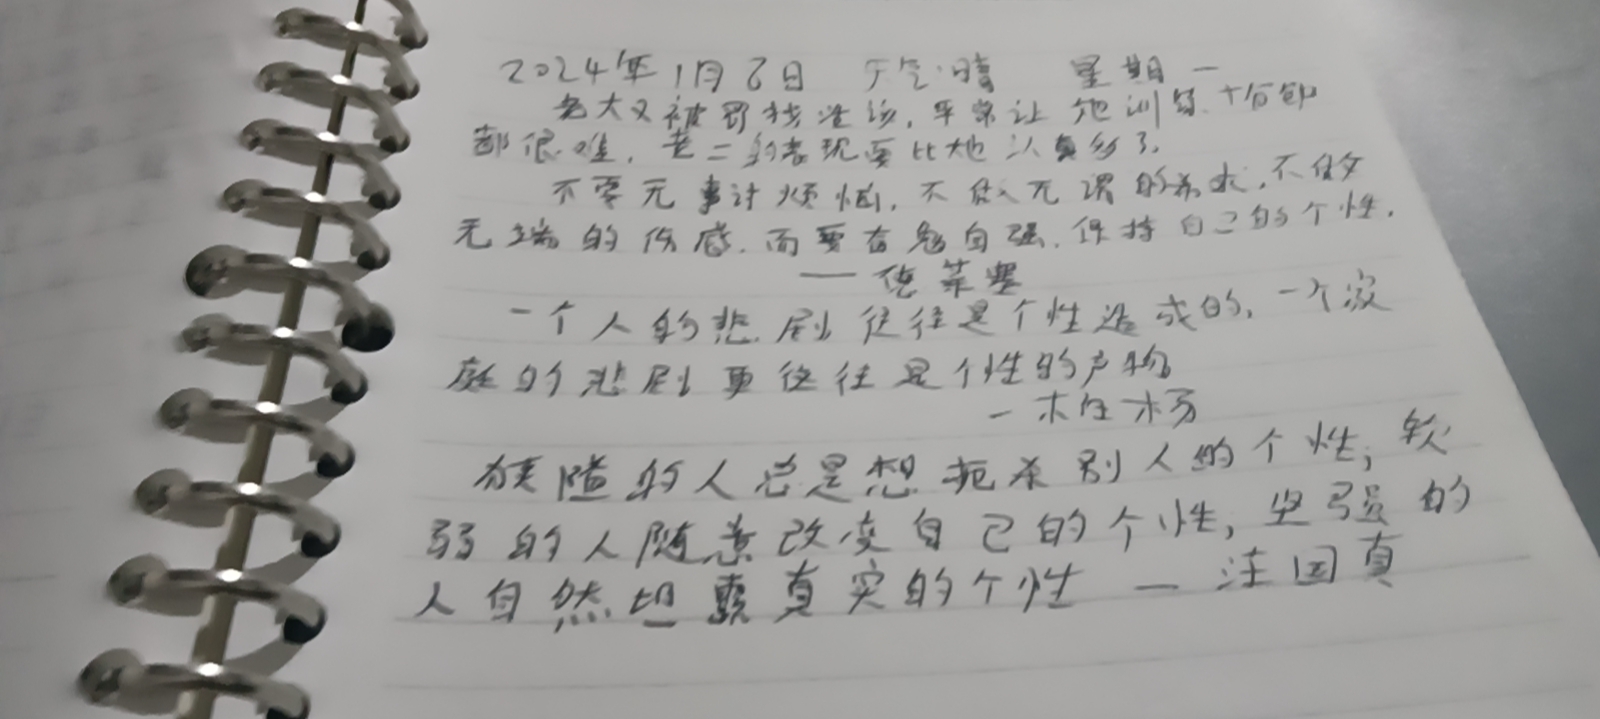 2024年1月6日 天气:晴 星期一
老大又被罚找准该,平常让他训练十分钟
都很难,老二的表现要比他认真多了.
不要无事讨烦恼,不做无谓的希求,不做
无端的伤感.而要奋勉自强,保持自己的个性.
——德莱塞
一个人的悲剧往往是个性造成的,一个家
庭的悲剧更往往是个性的产物
—木白杨
狭隘的人总是想扼杀别人的个性;软
弱的人随意改变自己的个性,坚强的
人自然坦露真实的个性 — 汪国真